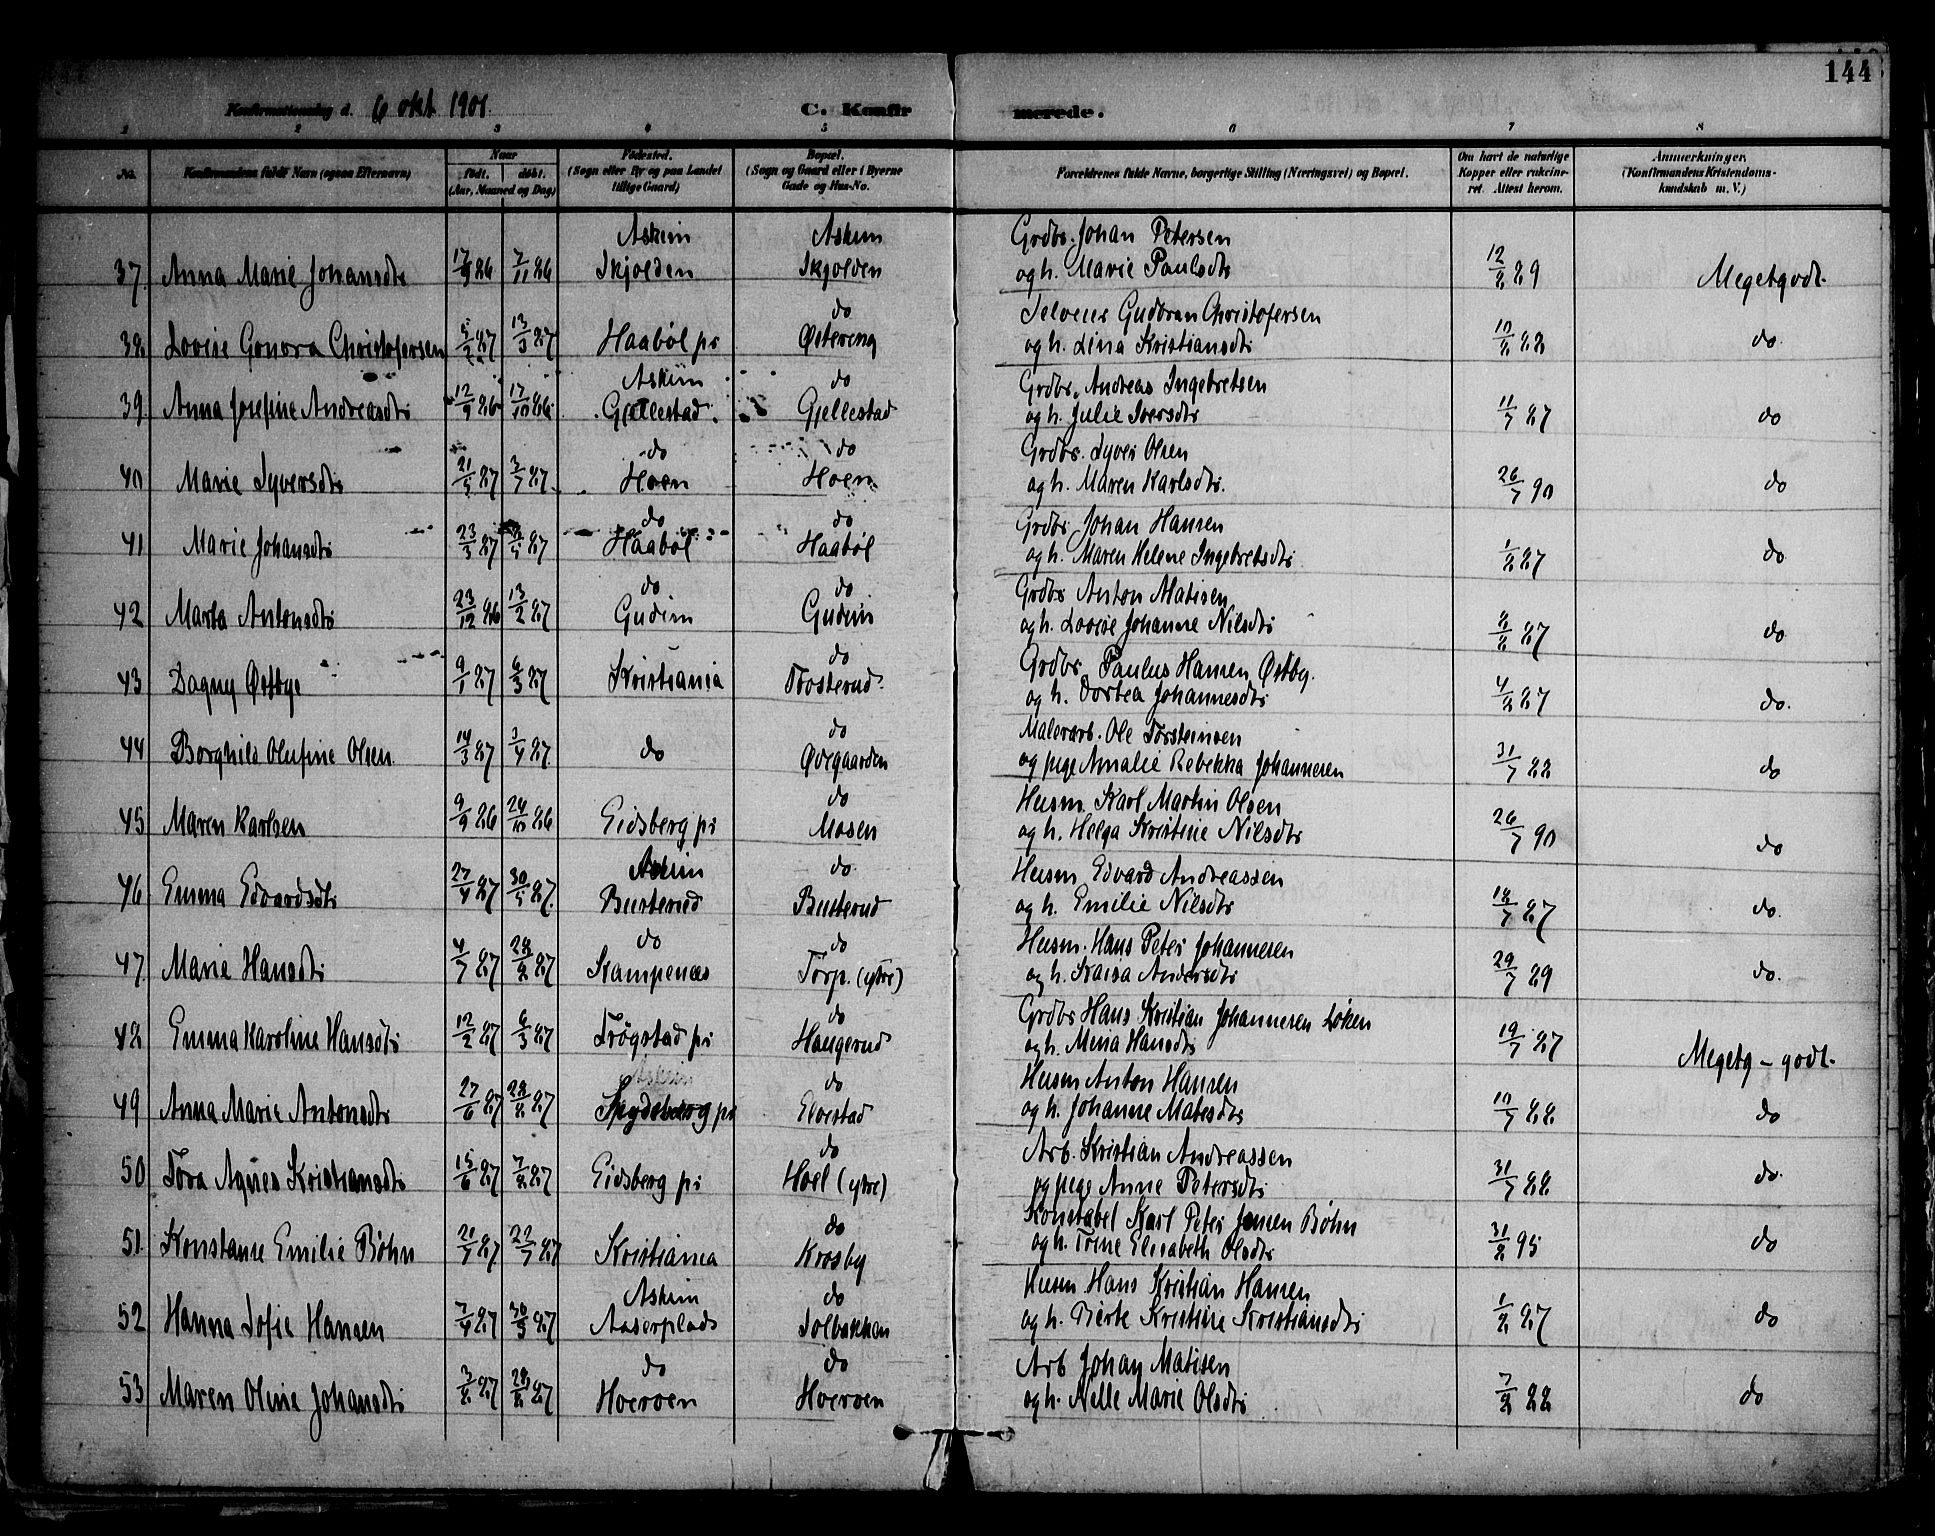 144
Konfirmationsdag d. 6 okt 1901. C. Konfirmerede.
1 2 3 4 5 6 7 8
No. Konfirmandens fulde Navn (ogsaa Efternavn) Naar født. døbt. (Aar, Maaned og Dag) Fødested. (Sogn eller By og paa Landet tillige Gaard) Bopæl. (Sogn og Gaard eller i Byerne Gade og Hus-No. Forældrenes fulde Navne, borgerlige Stilling (Næringsvei) og Bopæl. Om havt de naturlige Kopper eller vakcineret. Attest herom. Anmerkninger. (Konfirmandens Kristendomskundskab m. V.)
Askim Askim Grdbr. Johan Petersen
37. Anna Marie Johansdtr 17/9 86 7/11 86 Skjolden Skjolden og h. Marie Paulsdtr 12/8 89 Megetgodt.
do Selveier Gudbran Christofersen
38 Lovise Gonora Christofersen 5/2 87 13/3 87 Haabøl pr Østereng og h. Lina Kristiansdtr 10/8 88 do.
Askim do Grdbr. Andreas Ingebretsen
39 Anna Josefine Andreasdtr 12/9 86 17/10 86 Gjellestad Gjellestad og h. Julie Iversdtr 11/7 87 do
do do Grdbr. Syver Olsen
40 Marie Syversdtr 21/5 87 3/7 87 Hoen Hoen og h. Maren Karlsdtr. 26/7 90 do
do do Grdbr Johan Hansen
41 Marie Johansdtr 23/3 87 87 Haabøl Haabøl og h. Maren Helene Ingebretsdtr 1/8 87 do
do do Grdbr Anton Matisen
42 Marta Antonsdtr 23/12 86 13/2 87 Gudim Gudim og h. Lovise Johanne Nilsdtr 8/8 87 do
do Grdbr. Paulus Hansen Østby.
43 Dagny Østbye 9/1 87 6/3 87 Kristiania Trosterud. og h. Dortea Johannesdtr 4/8 87 do.
do Malerarb. Ole Torsteinsen
44 Borghild Olufine Olsen. 14/3 87 3/4 87 do Øvegaarden og pige Amalie Rebekka Johannesen 31/7 88 do
do Husm. Karl Martin Olsen
45 Maren Karlsen 9/9 86 24/10 86 Eidsberg pr Mosen og h. Helga Kristine Nilsdtr 26/7 90 do
Askim do. Husm Edvard Andreassen
46 Emma Edvardsdtr 27/4 87 30/5 87. Busterud Busterud og h. Emilie Nilsdtr 18/7 87 do.
do do Husm. Hans Peter Johannesen
47. Marie Hansdtr 4/7 87 28/8 87 Kampenæs Torp. (ytre) og h. Kaisa Andersdtr 29/7 89 do.
do Grdbr Hans Kristian Johannesen Løken
48 Emma Karoline Hansdtr 12/2 87 6/3 87 Trøgstad pr Haugerud og h. Mina Hansdtr 19/7 87 Megetg - godt.
Askim do Husm Anton Hansen
49 Anna Marie Antonsdtr 27/6 87 28/8 87 Spydeberg pr Elvestad og h. Johanne Matisdtr 10/7 88 do
do Arb. Kristian Andreassen
50 Tora Agnes Kristiansdtr 15/6 87 7/8 87 Eidsberg pr Hoel (ytre) og pige Anne Petersdtr 31/7 88 do.
do Konstabel Karl Peter Jensen Bøhn
51. Konstanse Emilie Bøhn 87 87 Kristiania Krosby og h. Trine Elisabeth Olsdtr 31/8 95 do
Askim do Husm Hans Kristian Hansen
52 Hanna Sofie Hansen 7/4 87 30/5 87 Aaserplads Solbakken og h. Berte Kristine Kristiansdtr 1/8 87 do
do do Arb Johan Matisen
53 Maren Oline Johansdtr 3/8 87 28/8 87 Hoeroen Hoeroen og h. Nelle Marie Olsdtr 7/8 88 do